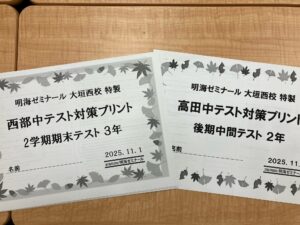 明海ゼミナール 大垣西校 特製
西部中テスト対策プリント
2学期期末テスト 3年
名前
2025.11.1
明海ゼミナール 大垣西校 特製
高田中テスト対策プリント
後期中間テスト 2年
名前
2025.11.
明海ゼミナール